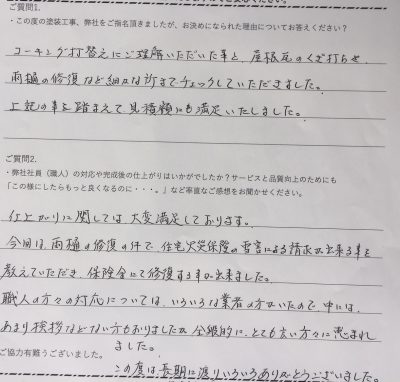 ご質問1.
・この度の塗装工事、弊社をご指名頂きましたが、お決めになられた理由についてお答えください？
コーキング打替えにご理解いただいた事と、屋根瓦のくぎ打ちや
雨樋の修復など細かな所までチェックしていただきました。
上記の事を踏まえて見積額にも満足いたしました。
ご質問2.
・弊社社員（職人）の対応や完成後の仕上がりはいかがでしたか？サービスと品質向上のためにも
「この様にしたらもっと良くなるのに・・・。」など率直なご感想をお聞かせください。
仕上がりに関しては大変満足しております。
今回は、雨樋の修復の件で、住宅火災保険の雪害による請求が出来る事を
教えていただき、保険金にて修復する事が出来ました。
職人の方々の対応については、いろいろな業者の方がいたので、中には、
あまり挨拶などない方もおりましたが、全般的に、とても良い方々に恵まれ
ました。
ご協力有難うございました。
この度は長期に渡りいろいろありがとうございました。